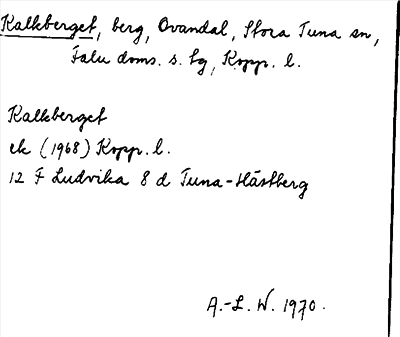 Kalkberget, berg, Ovandal, Stora Tuna sn,
Falu doms. s. tg, Kopp. l.
Kalkberget
ek (1968) Kopp. l.
12 F Ludvika 8 d Tuna-Hästberg
A.-L. W. 1970.